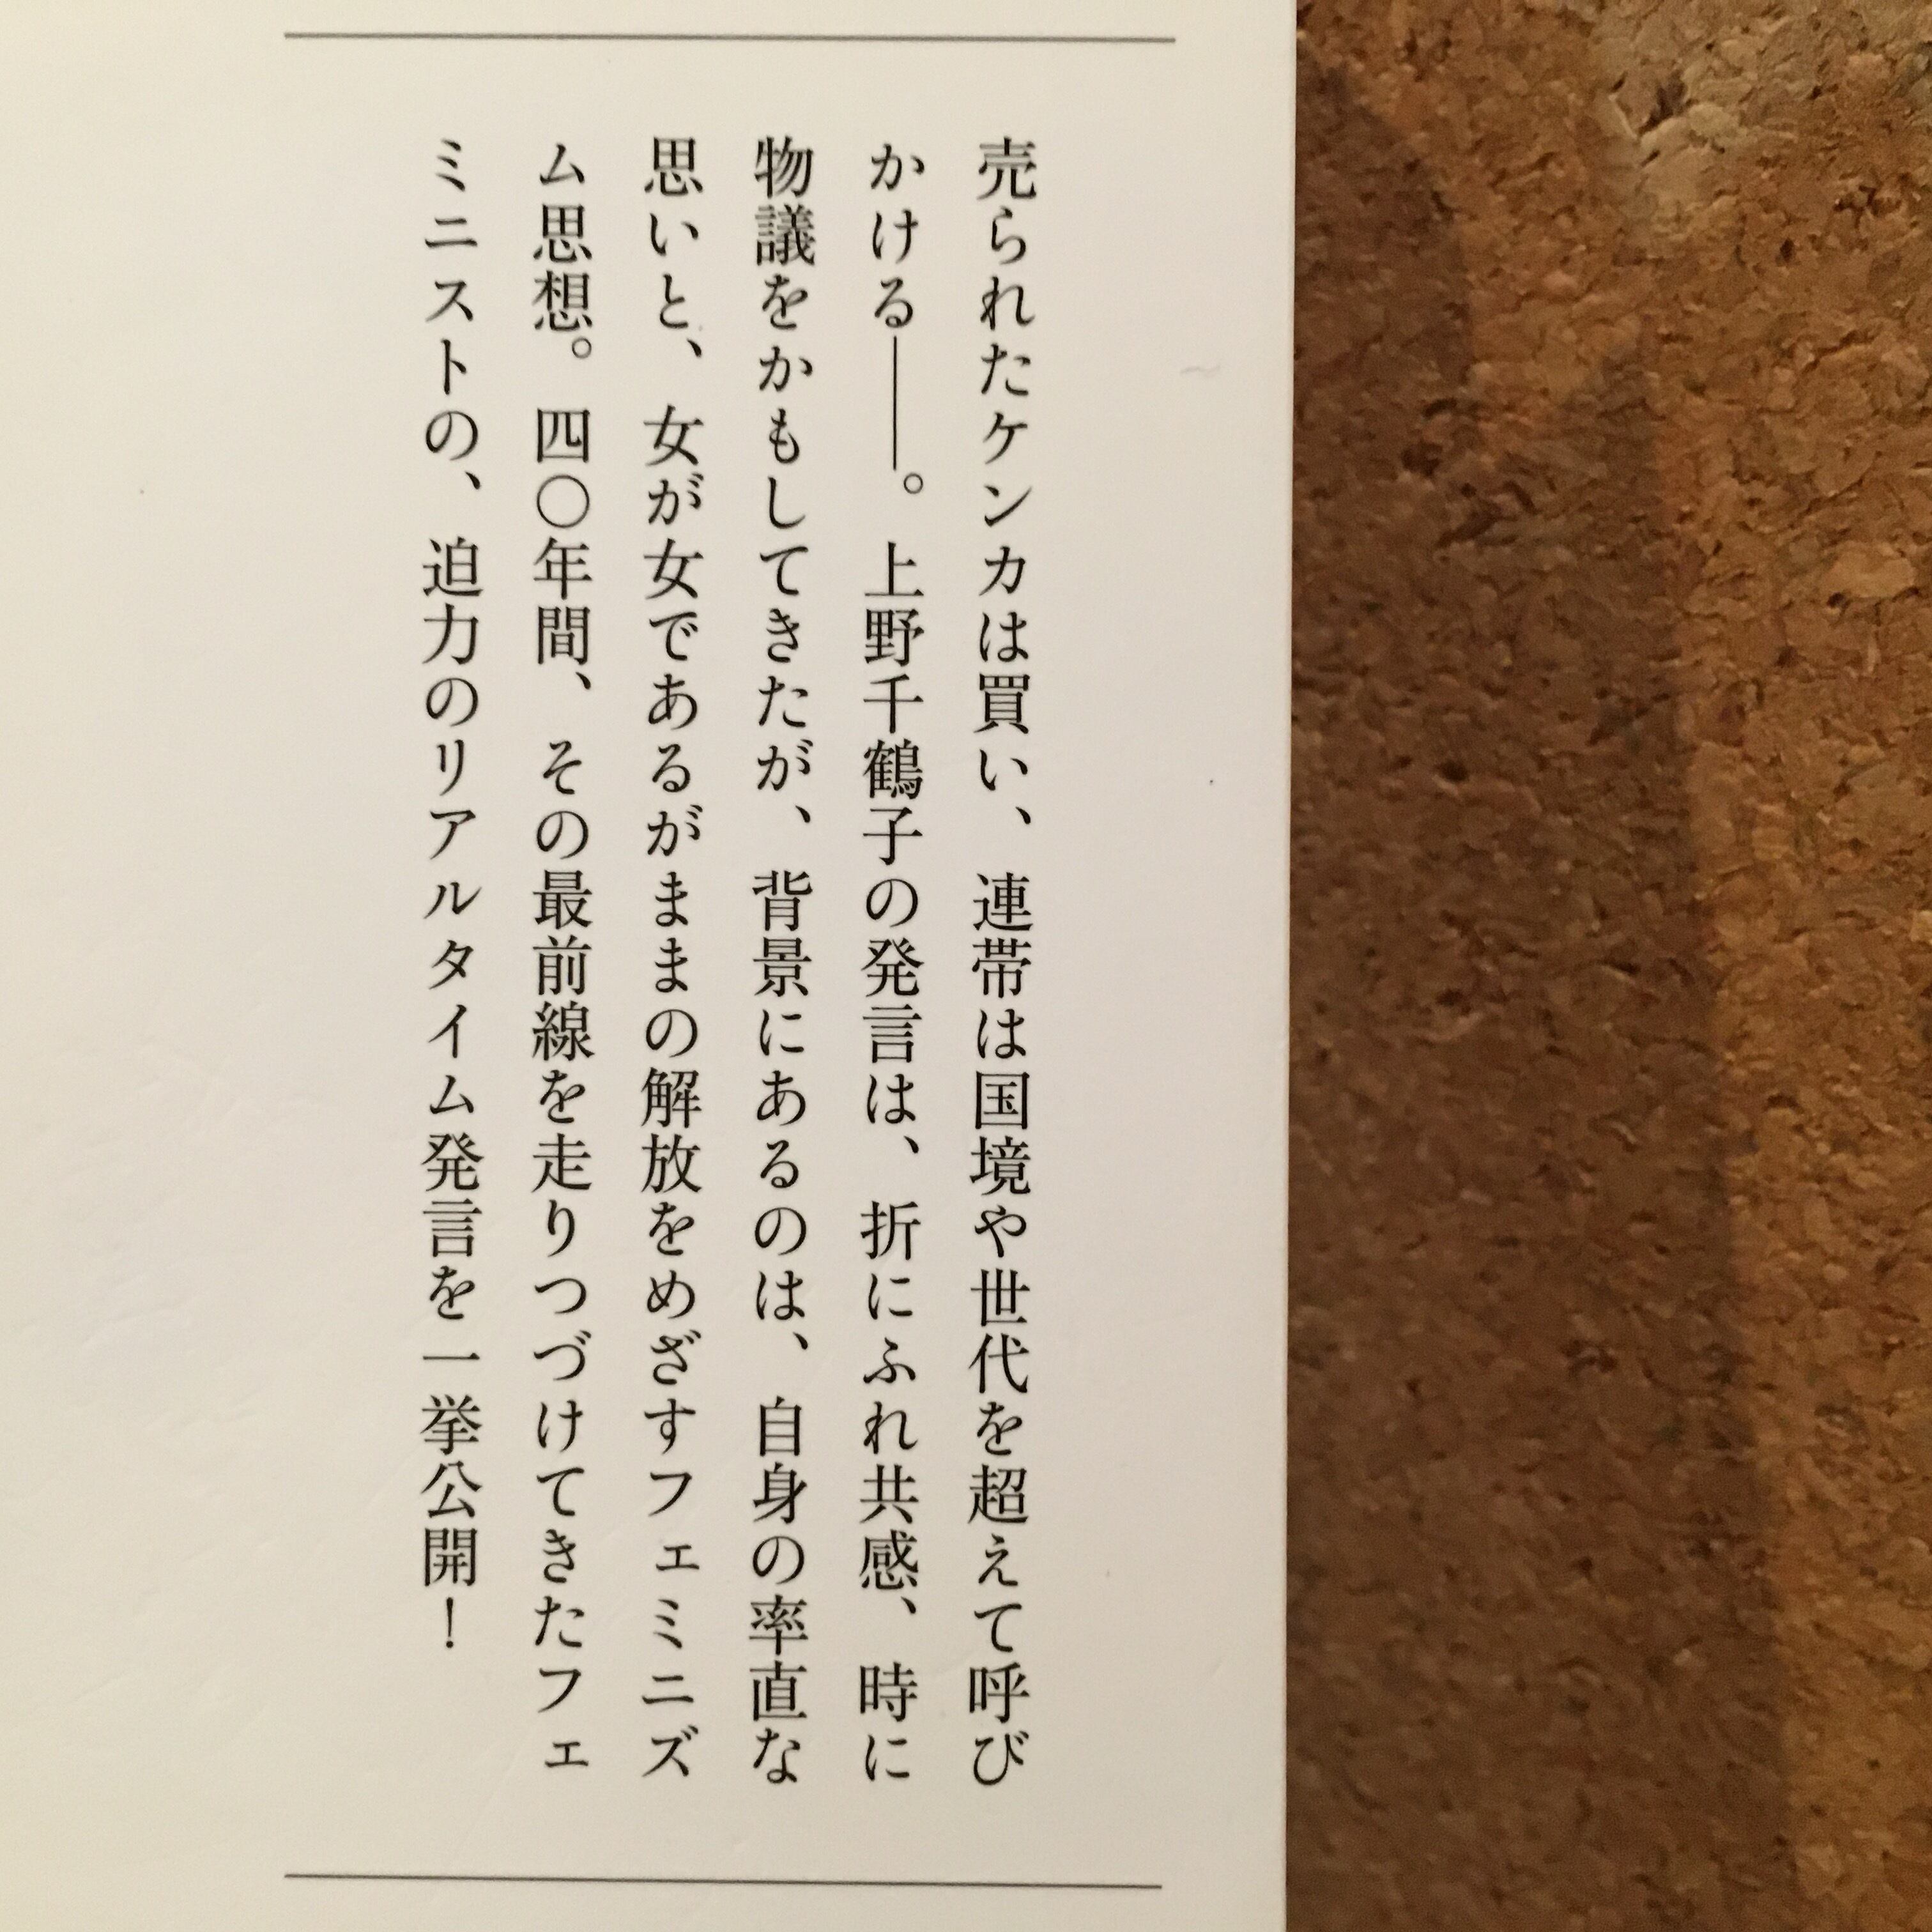 売られたケンカは買い、連帯は国境や世代を超えて呼び
かける――。上野千鶴子の発言は、折にふれ共感、時に
物議をかもしてきたが、背景にあるのは、自身の率直な
思いと、女が女であるがままの解放をめざすフェミニズ
ム思想。四〇年間、その最前線を走りつづけてきたフェ
ミニストの、迫力のリアルタイム発言を一挙公開！